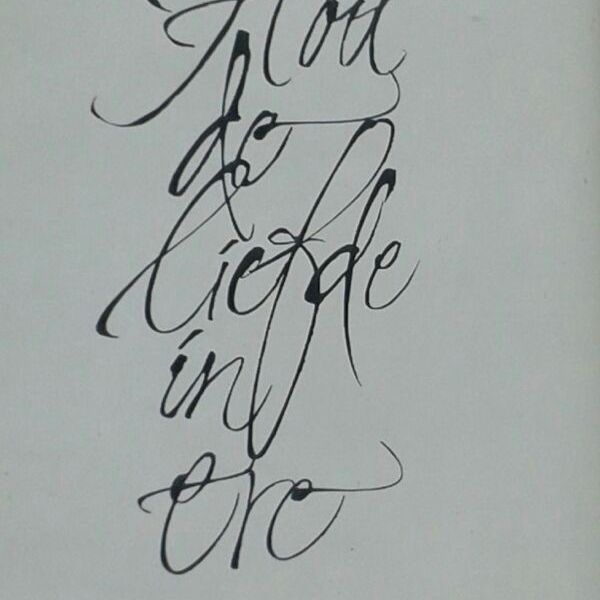 Hou
de
liefde
in
ere